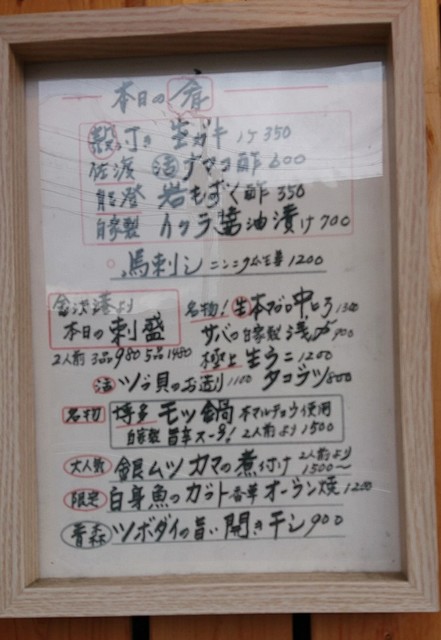 本日の肴
寸き 生ガキ 1ケ350
佐渡 活ナマコ酢 600
能登 岩もずく酢 350
自家製 イクラ醤油漬け 700
馬刺し ニンニク&生姜 1200
金沢港より 名物!生本マグロ中とろ 1300
本日の刺盛 サバの自家製浅〆 900
2人前 3品980 5品1480 極上生ウニ 1200
活ツブ貝のお造り 1100 タコブツ 800
名物 博多モツ鍋 本マルチョウ使用
自家製 旨辛スープ! 2人前より 1500
大人気 銀ムツカマの煮付け 2人前より
1500〜
限定 白身魚のガラト香草オーブン焼 1200
青森 ツボダイの旨い開き干し 900